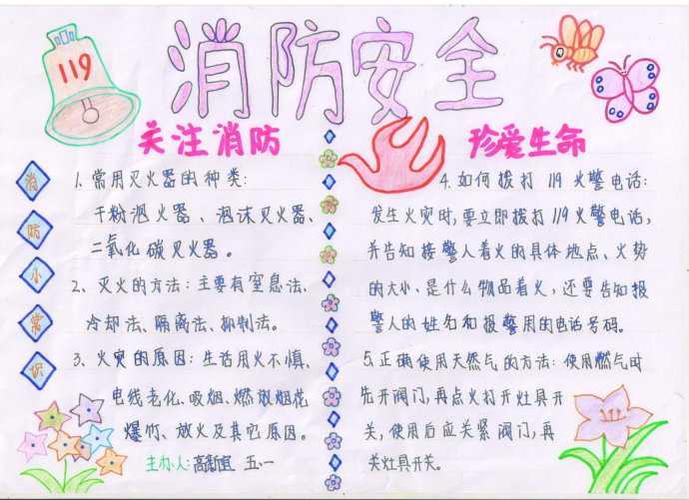 119
消防安全
关注消防
珍爱生命
消防小常识
1. 常用灭火器的种类:
干粉泡火器、泡沫灭火器、
二氧化碳灭火器。
2、灭火的方法: 主要有窒息法、
冷却法、隔离法、抑制法。
3、火灾的原因: 生活用火不慎、
电线老化、吸烟、燃放烟花
爆竹、放火及其它原因。
主办人: 高 五、一
4. 如何拨打 119 火警电话:
发生火灾时, 要立即拨打119火警电话,
并告知接警人着火的具体地点、火势
的大小、是什么物品着火, 还要告知报
警人的姓名和报警用的电话号码。
5. 正确使用天然气的方法: 使用燃气时
先开阀门, 再点火打开灶具开
关, 使用后应关紧阀门, 再
关灶具开关。